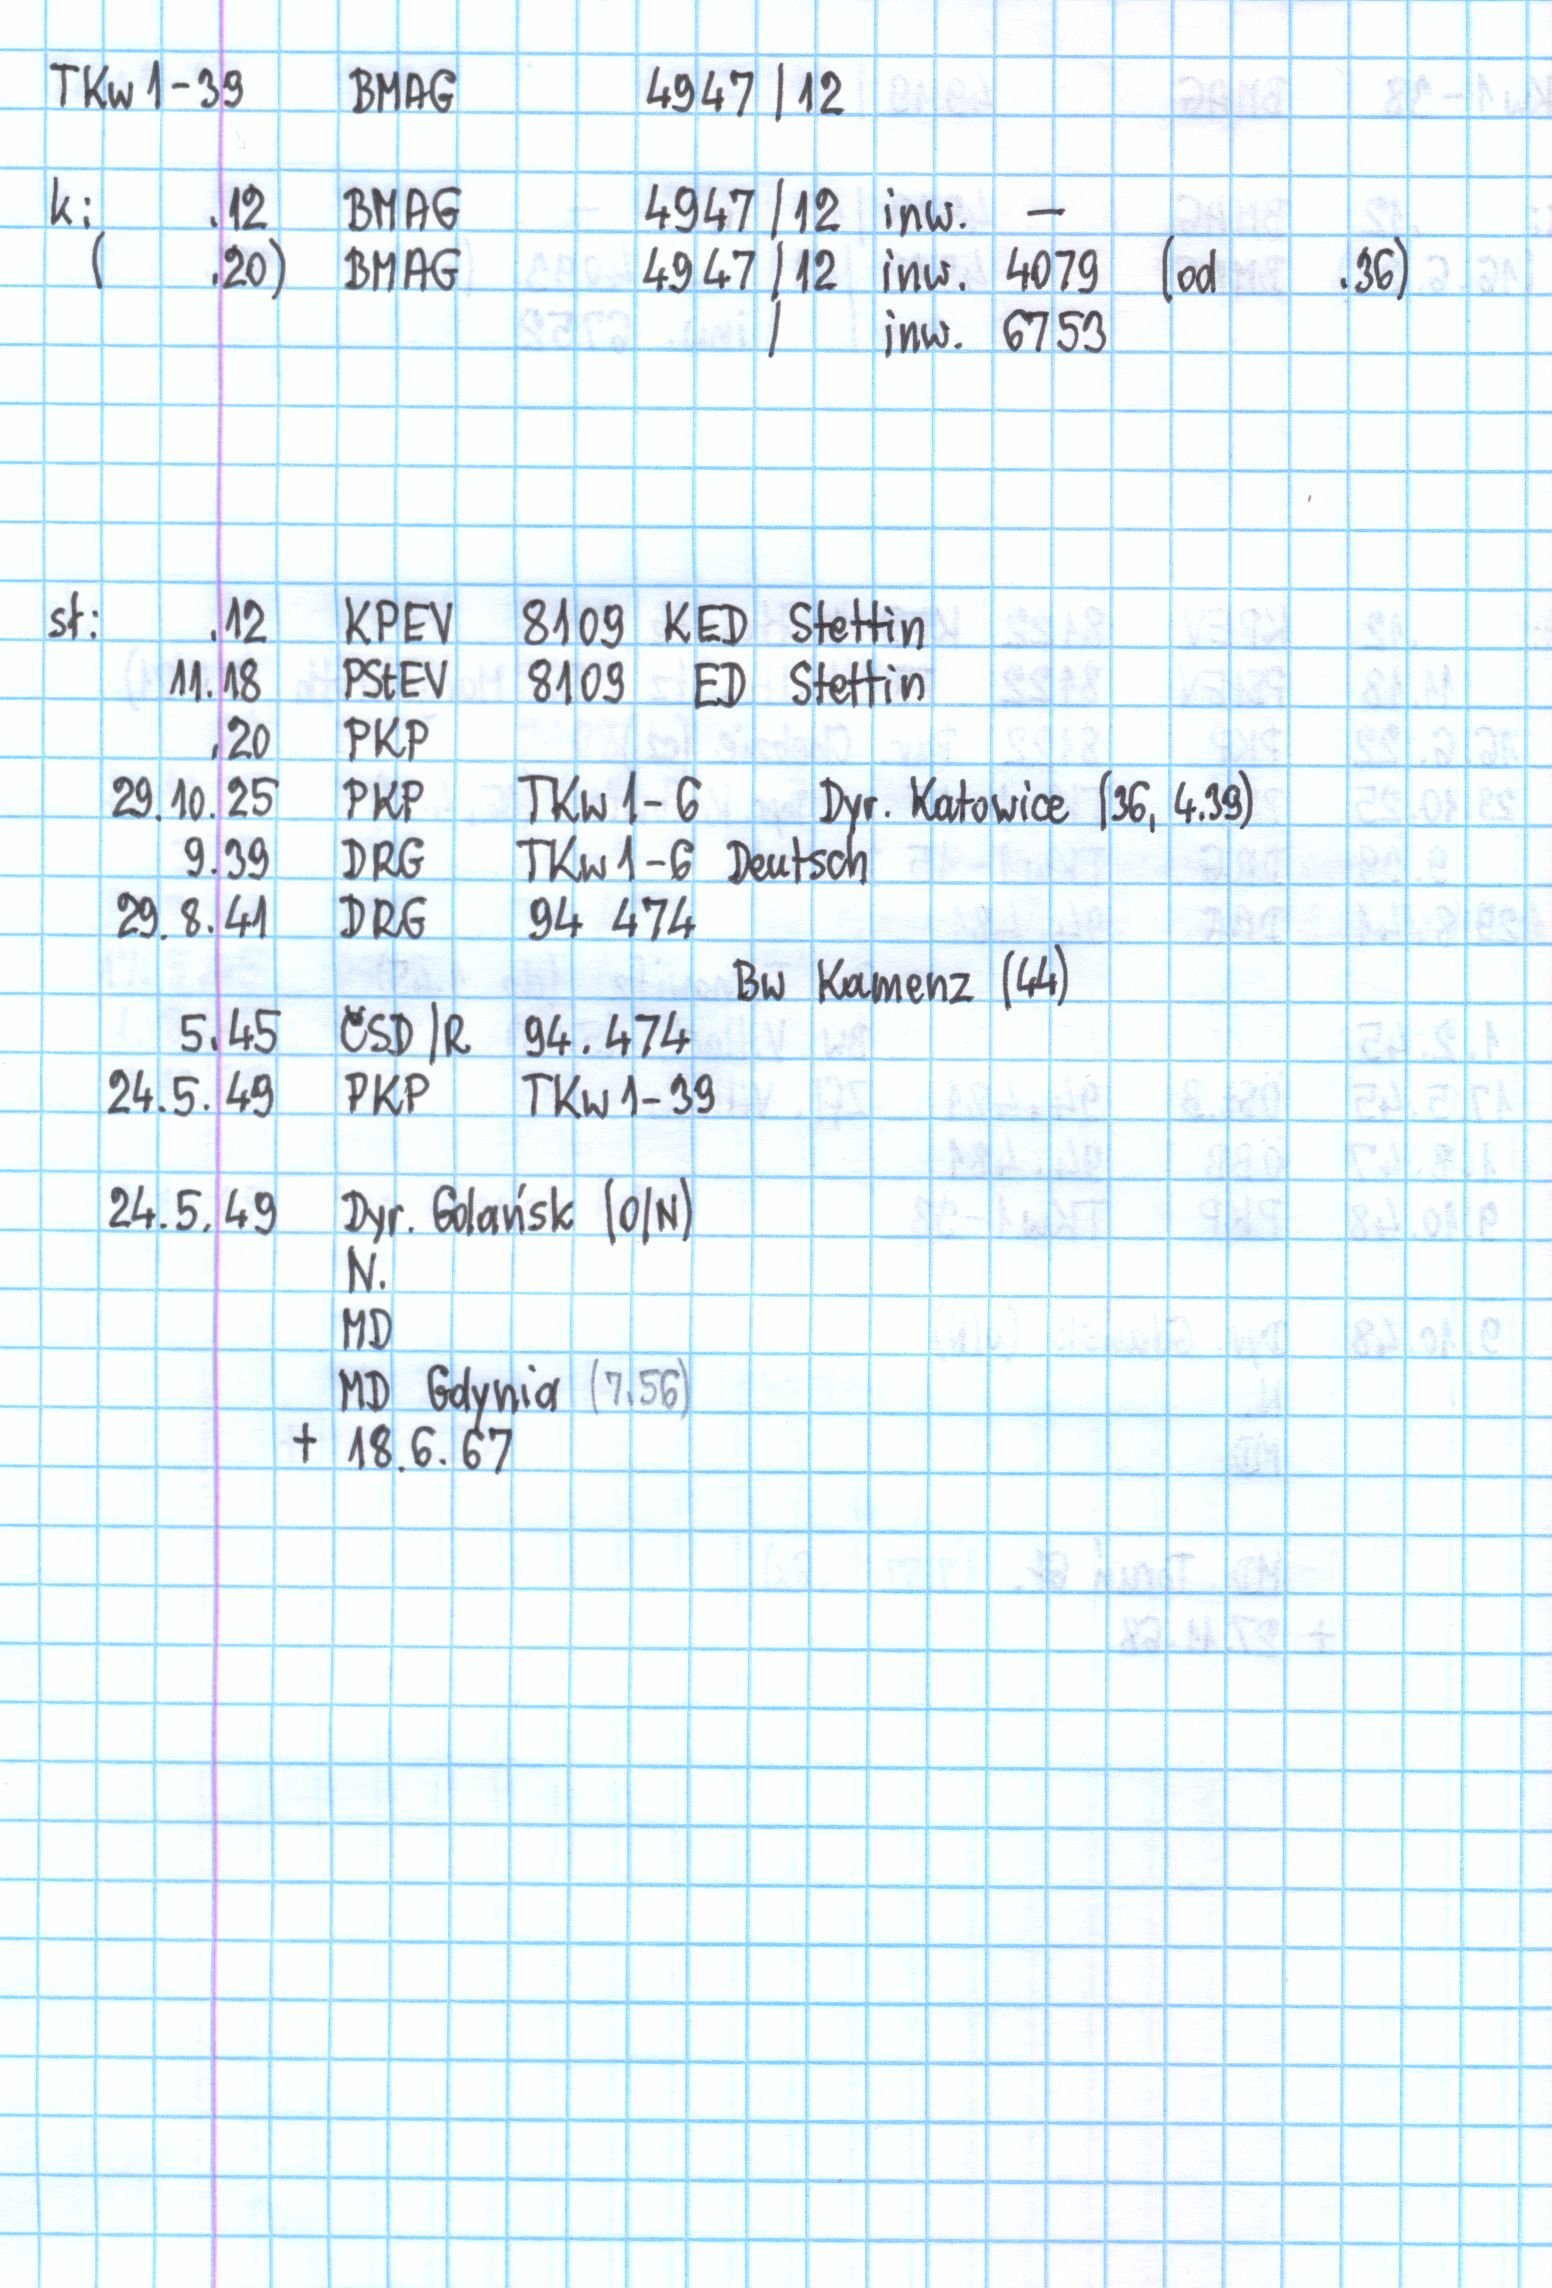 TKw 1-39 BMAG 4947/12
k: .12 BMAG 4947/12 inw. —
( .20) BMAG 4947/12 inw. 4079 (od .36)
/ inw. 6753
st: .12 KPEV 8109 KED Stettin
11.18 PStEV 8109 ED Stettin
.20 PKP
29.10.25 PKP TKw 1-6 Dyr. Katowice (36, 4.39)
9.39 DRG TKw 1-6 Deutsch
29.8.41 DRG 94 474
Bw Kamenz (44)
5.45 ČSD/R 94.474
24.5.49 PKP TKw 1-39
24.5.49 Dyr. Gdańsk (O/N)
N.
MD
MD Gdynia (7.56)
+ 18.6.67